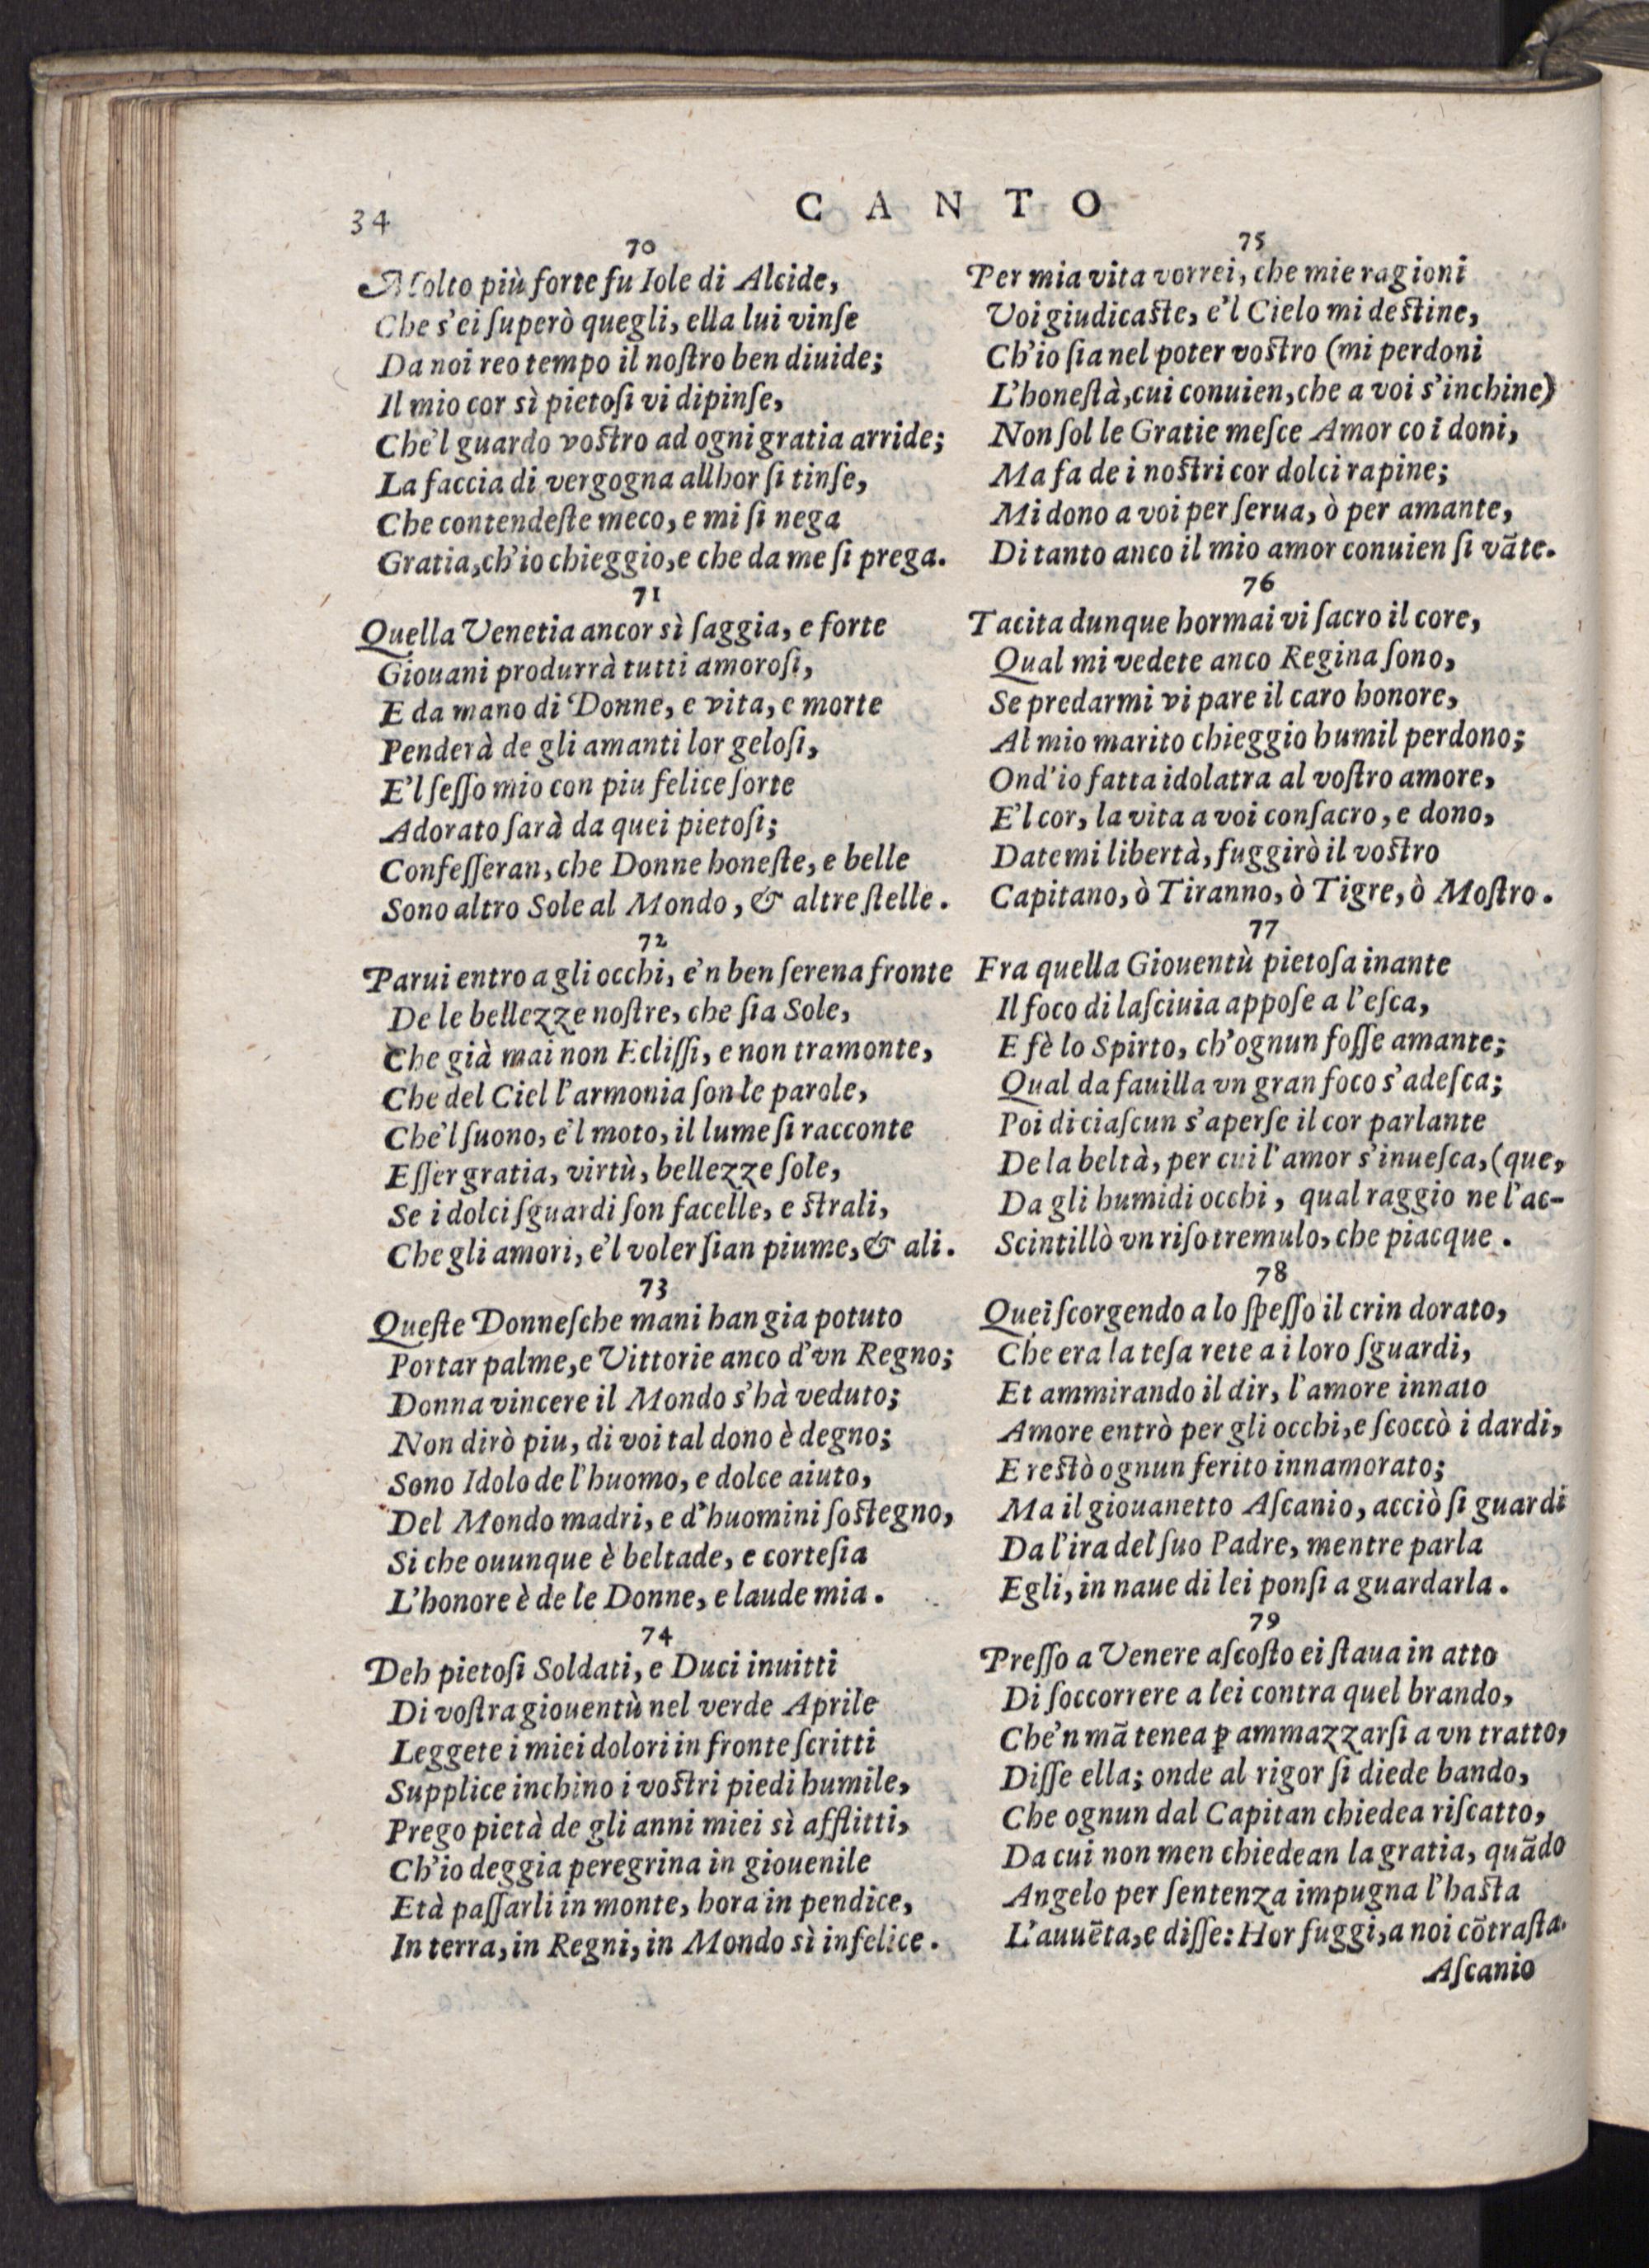 34
CANTO
70
Molto più forte fu Iole di Alcide,
Che s'ei ſuperò quegli, ella lui vinſe
Da noi reo tempo il noſtro ben diuide;
Il mio cor sì pietoſi vi dipinſe,
Che'l guardo voſtro ad ogni gratia arride;
La faccia di vergogna allhor ſi tinſe,
Che contendeſte meco, e mi ſi nega
Gratia, ch'io chieggio, e che da me ſi prega.
71
Quella Venetia ancor sì ſaggia, e forte
Giouani produrrà tutti amoroſi,
E da mano di Donne, e vita, e morte
Penderà de gli amanti lor geloſi,
E'l ſeſſo mio con piu felice ſorte
Adorato ſarà da quei pietoſi;
Confeſſeran, che Donne honeſte, e belle
Sono altro Sole al Mondo, & altre ſtelle.
72
Parui entro a gli occhi, e'n ben ſerena fronte
De le bellezze noſtre, che ſia Sole,
Che già mai non Ecliſſi, e non tramonte,
Che del Ciel l'armonia ſon le parole,
Che'l ſuono, e'l moto, il lume ſi racconte
Eſſer gratia, virtù, bellezze ſole,
Se i dolci ſguardi ſon facelle, e ſtrali,
Che gli amori, e'l voler ſian piume, & ali.
73
Queſte Donneſche mani han gia potuto
Portar palme, e Vittorie anco d'vn Regno;
Donna vincere il Mondo s'hà veduto;
Non dirò piu, di voi tal dono è degno;
Sono Idolo de l'huomo, e dolce aiuto,
Del Mondo madri, e d'huomini ſoſtegno,
Si che ouunque è beltade, e corteſia
L'honore è de le Donne, e laude mia.
74
Deh pietoſi Soldati, e Duci inuitti
Di voſtra giouentù nel verde Aprile
Leggete i miei dolori in fronte ſcritti
Supplice inchino i voſtri piedi humile,
Prego pietà de gli anni miei sì afflitti,
Ch'io deggia peregrina in giouenile
Età paſſarli in monte, hora in pendice,
In terra, in Regni, in Mondo sì infelice.
75
Per mia vita vorrei, che mie ragioni
Voi giudicaſte, e'l Cielo mi deſtine,
Ch'io ſia nel poter voſtro (mi perdoni
L'honeſtà, cui conuien, che a voi s'inchine)
Non ſol le Gratie meſce Amor co i doni,
Ma fa de i noſtri cor dolci rapine;
Mi dono a voi per ſerua, ò per amante,
Di tanto anco il mio amor conuien ſi vãte.
76
Tacita dunque hormai vi ſacro il core,
Qual mi vedete anco Regina ſono,
Se predarmi vi pare il caro honore,
Al mio marito chieggio humil perdono;
Ond'io fatta idolatra al voſtro amore,
E'l cor, la vita a voi conſacro, e dono,
Datemi libertà, fuggirò il voſtro
Capitano, ò Tiranno, ò Tigre, ò Moſtro.
77
Fra quella Giouentù pietoſa inante
Il foco di laſciuia appoſe a l'eſca,
E fè lo Spirto, ch'ognun foſſe amante;
Qual da fauilla vn gran foco s'adeſca;
Poi di ciaſcun s'aperſe il cor parlante
De la beltà, per cui l'amor s'inueſca, (que,
Da gli humidi occhi, qual raggio ne l'ac-
Scintillò vn riſo tremulo, che piacque.
78
Quei ſcorgendo a lo ſpeſſo il crin dorato,
Che era la teſa rete a i loro ſguardi,
Et ammirando il dir, l'amore innato
Amore entrò per gli occhi, e ſcoccò i dardi,
E reſtò ognun ferito innamorato;
Ma il giouanetto Aſcanio, acciò ſi guardi
Da l'ira del ſuo Padre, mentre parla
Egli, in naue di lei ponſi a guardarla.
79
Preſſo a Venere aſcoſto ei ſtaua in atto
Di ſoccorrere a lei contra quel brando,
Che'n mã tenea ꝑ ammazzarſi a vn tratto,
Diſſe ella; onde al rigor ſi diede bando,
Che ognun dal Capitan chiedea riſcatto,
Da cui non men chiedean la gratia, quãdo
Angelo per ſentenza impugna l'haſta
L'auuẽta, e diſſe: Hor fuggi, a noi cõtraſta.
Aſcanio